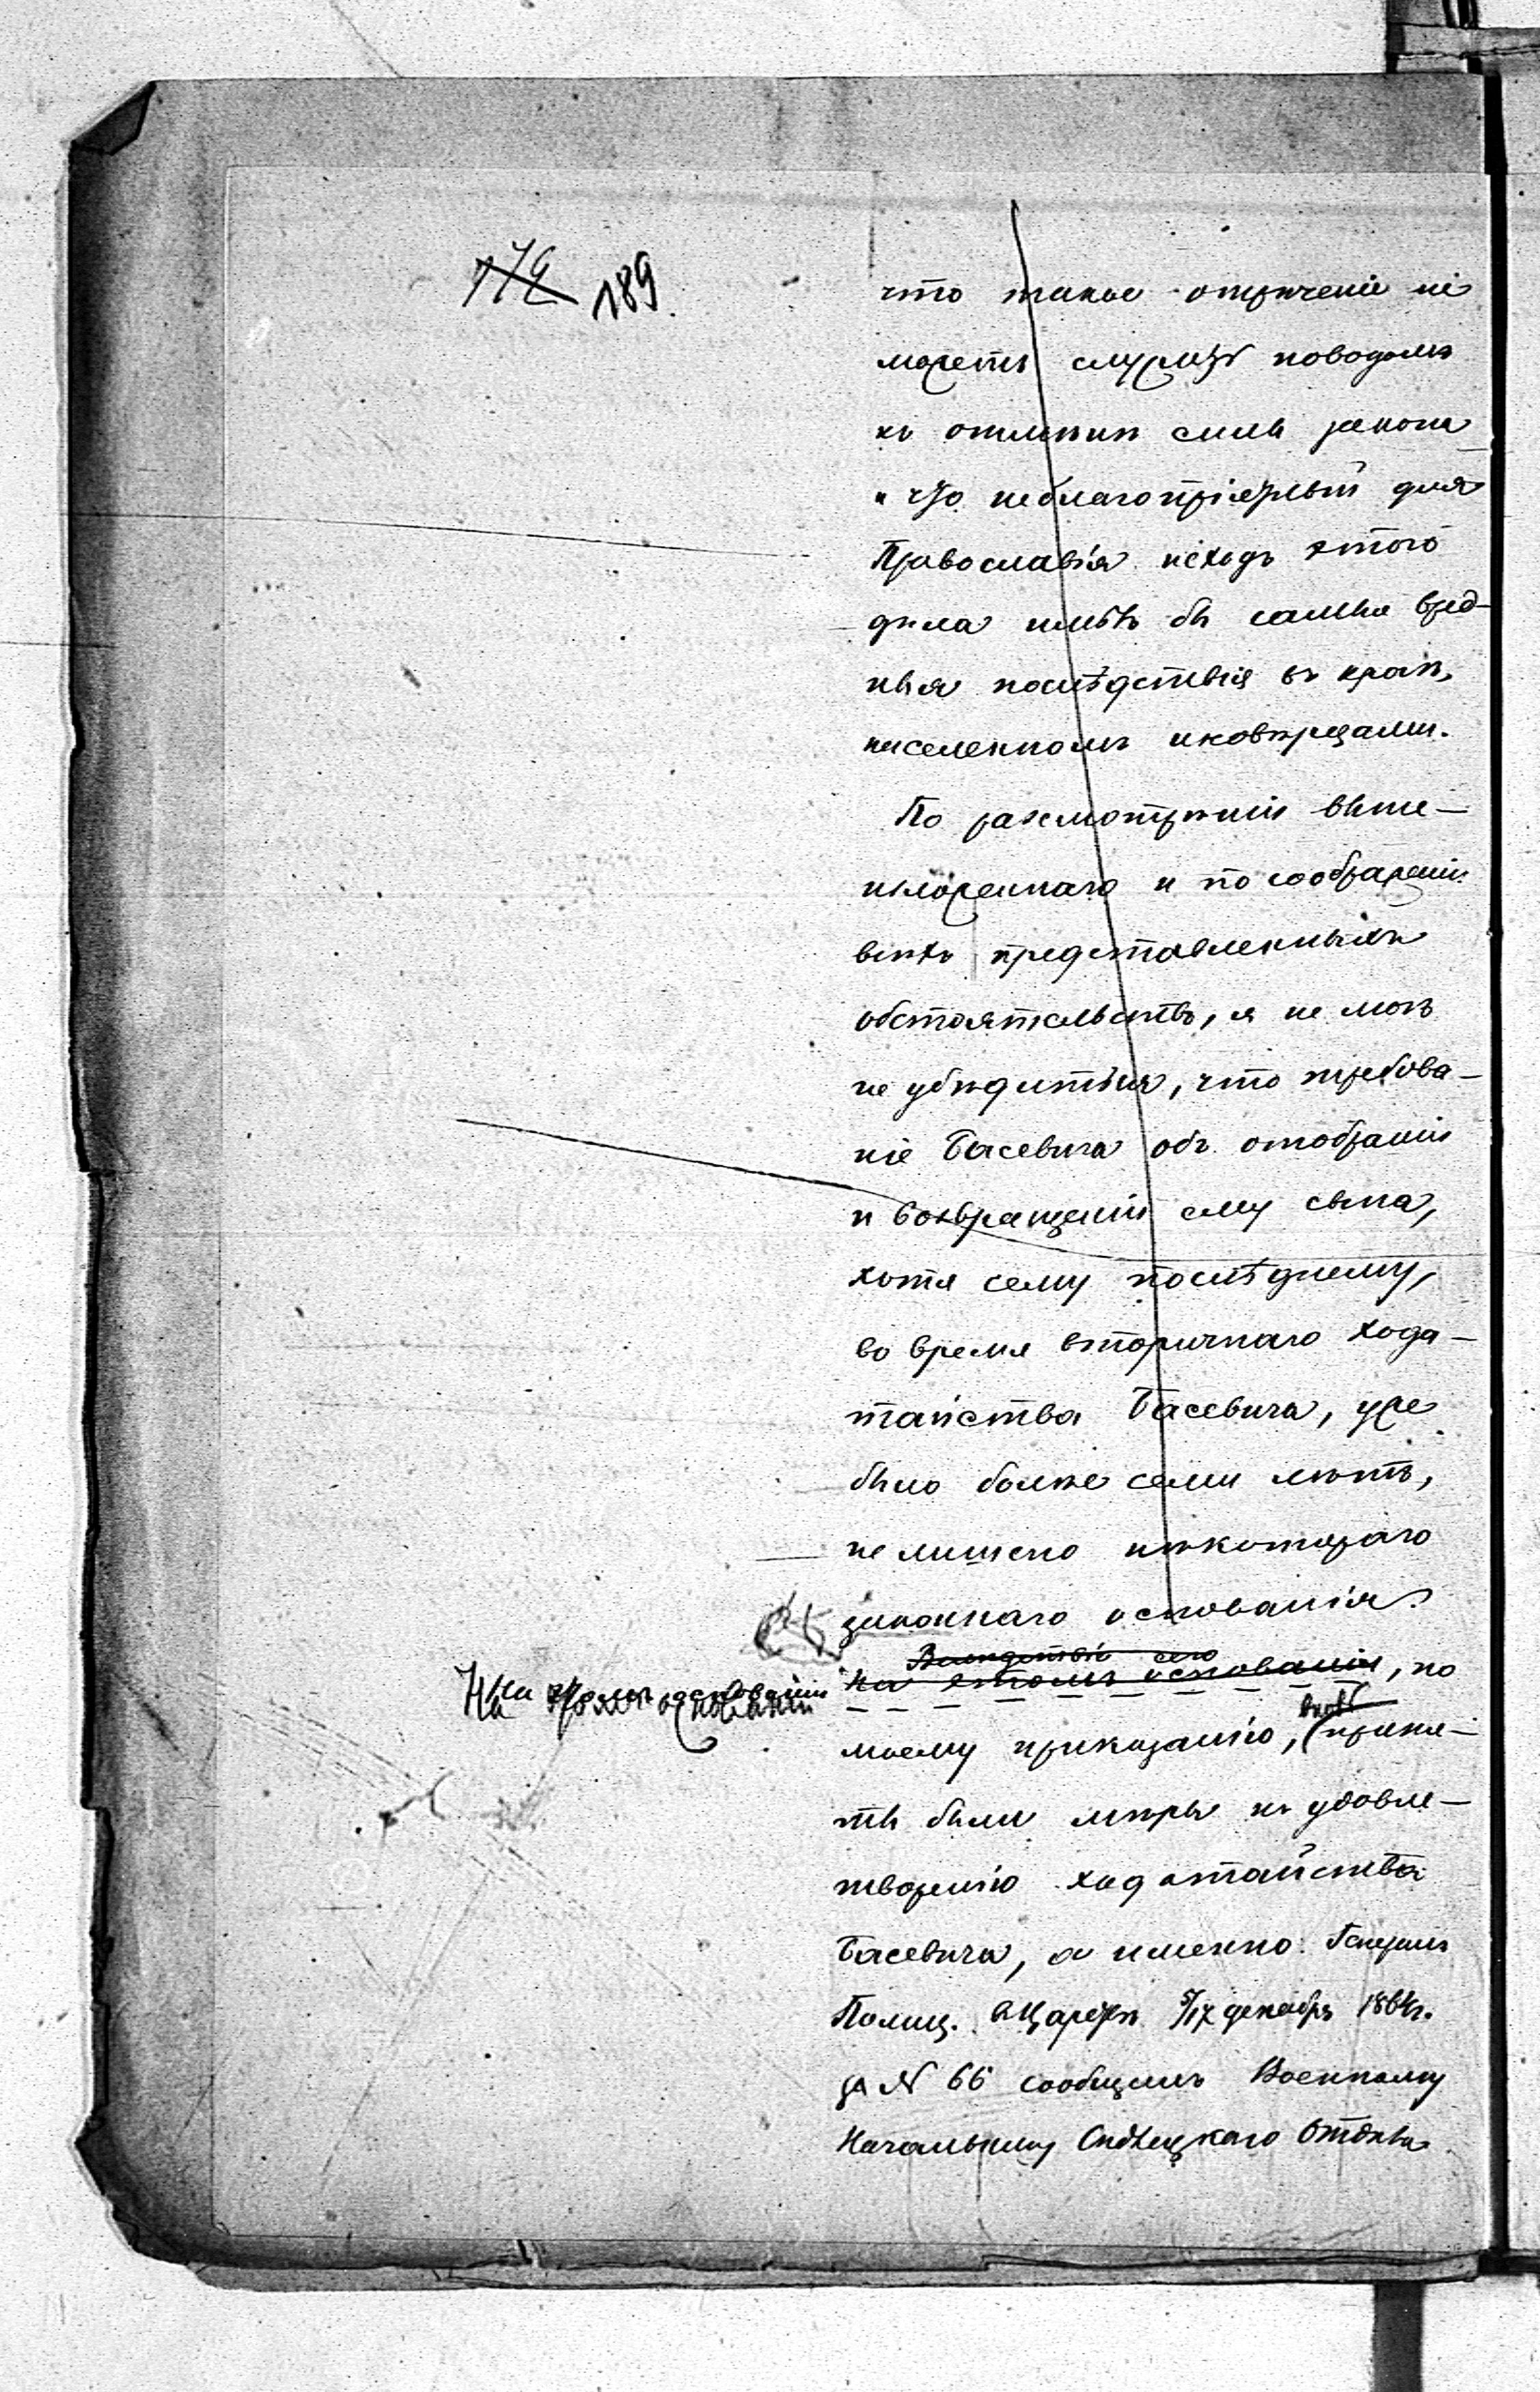 189.
что такое отреченіе не
можетъ служить поводомъ
къ отмѣнѣ силы закона
и что неблагопріятный для
Православія исходъ этого
дѣла имѣлъ бы самыя вред-
ныя послѣдствія въ краѣ,
населенномъ иновѣрцами.
По разсмотрѣніи выше-
изложеннаго и по соображеніи
всѣхъ представленныхъ
обстоятельствъ, я не могъ
не убѣдиться, что требова-
ніе Басевича объ отобраніи
и возвращеніи ему сына,
хотя сему послѣднему,
во время вторичнаго хода-
тайства Басевича, уже
было болѣе семи лѣтъ,
не лишено нѣкотораго
законнаго основанія.
Вслѣдствіе сего
На этомъ основаніи
На этомъ основаніи, по
моему приказанію, приня-
ты были мѣры къ удовле-
творенію ходатайства
Басевича, а именно: Генералъ
Полиц. въ Царствѣ 5/17 декабря 1864г.
за № 66 сообщилъ Военному
Начальнику Сѣдлецкаго Отдѣла